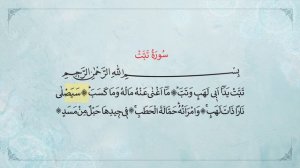 سورة تبت
بسم الله الرحمن الرحيم
تبت يدا أبي لهب وتب ۝ ما أغنى عنه ماله وما كسب ۝ سيصلى
نارا ذات لهب ۝ وامرأته حمالة الحطب ۝ في جيدها حبل من مسد ۝